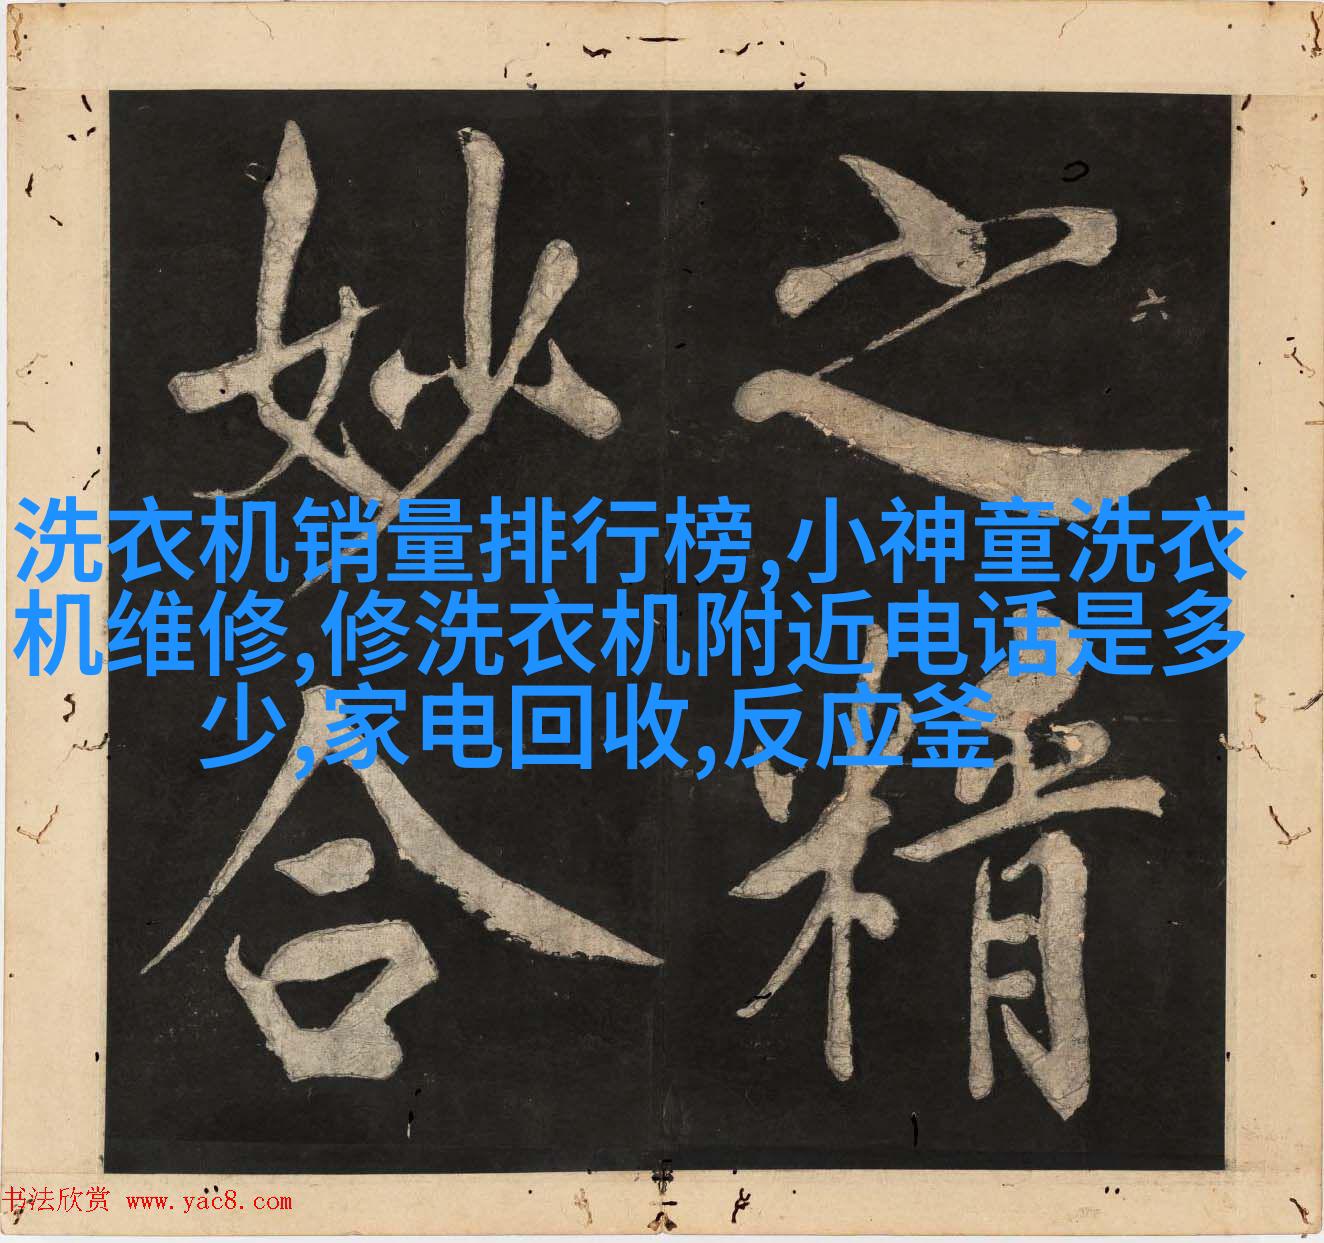 之精
妙合
六
洗衣机销量排行榜,小神童洗衣
机维修,修洗衣机附近电话是多
少,家电回收,反应釜
书法欣赏 www.yac8.com